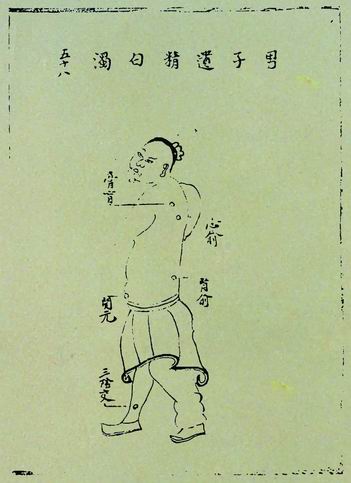 男子遺精白濁
五十八
膏肓
心俞
腎俞
関元
三陰交